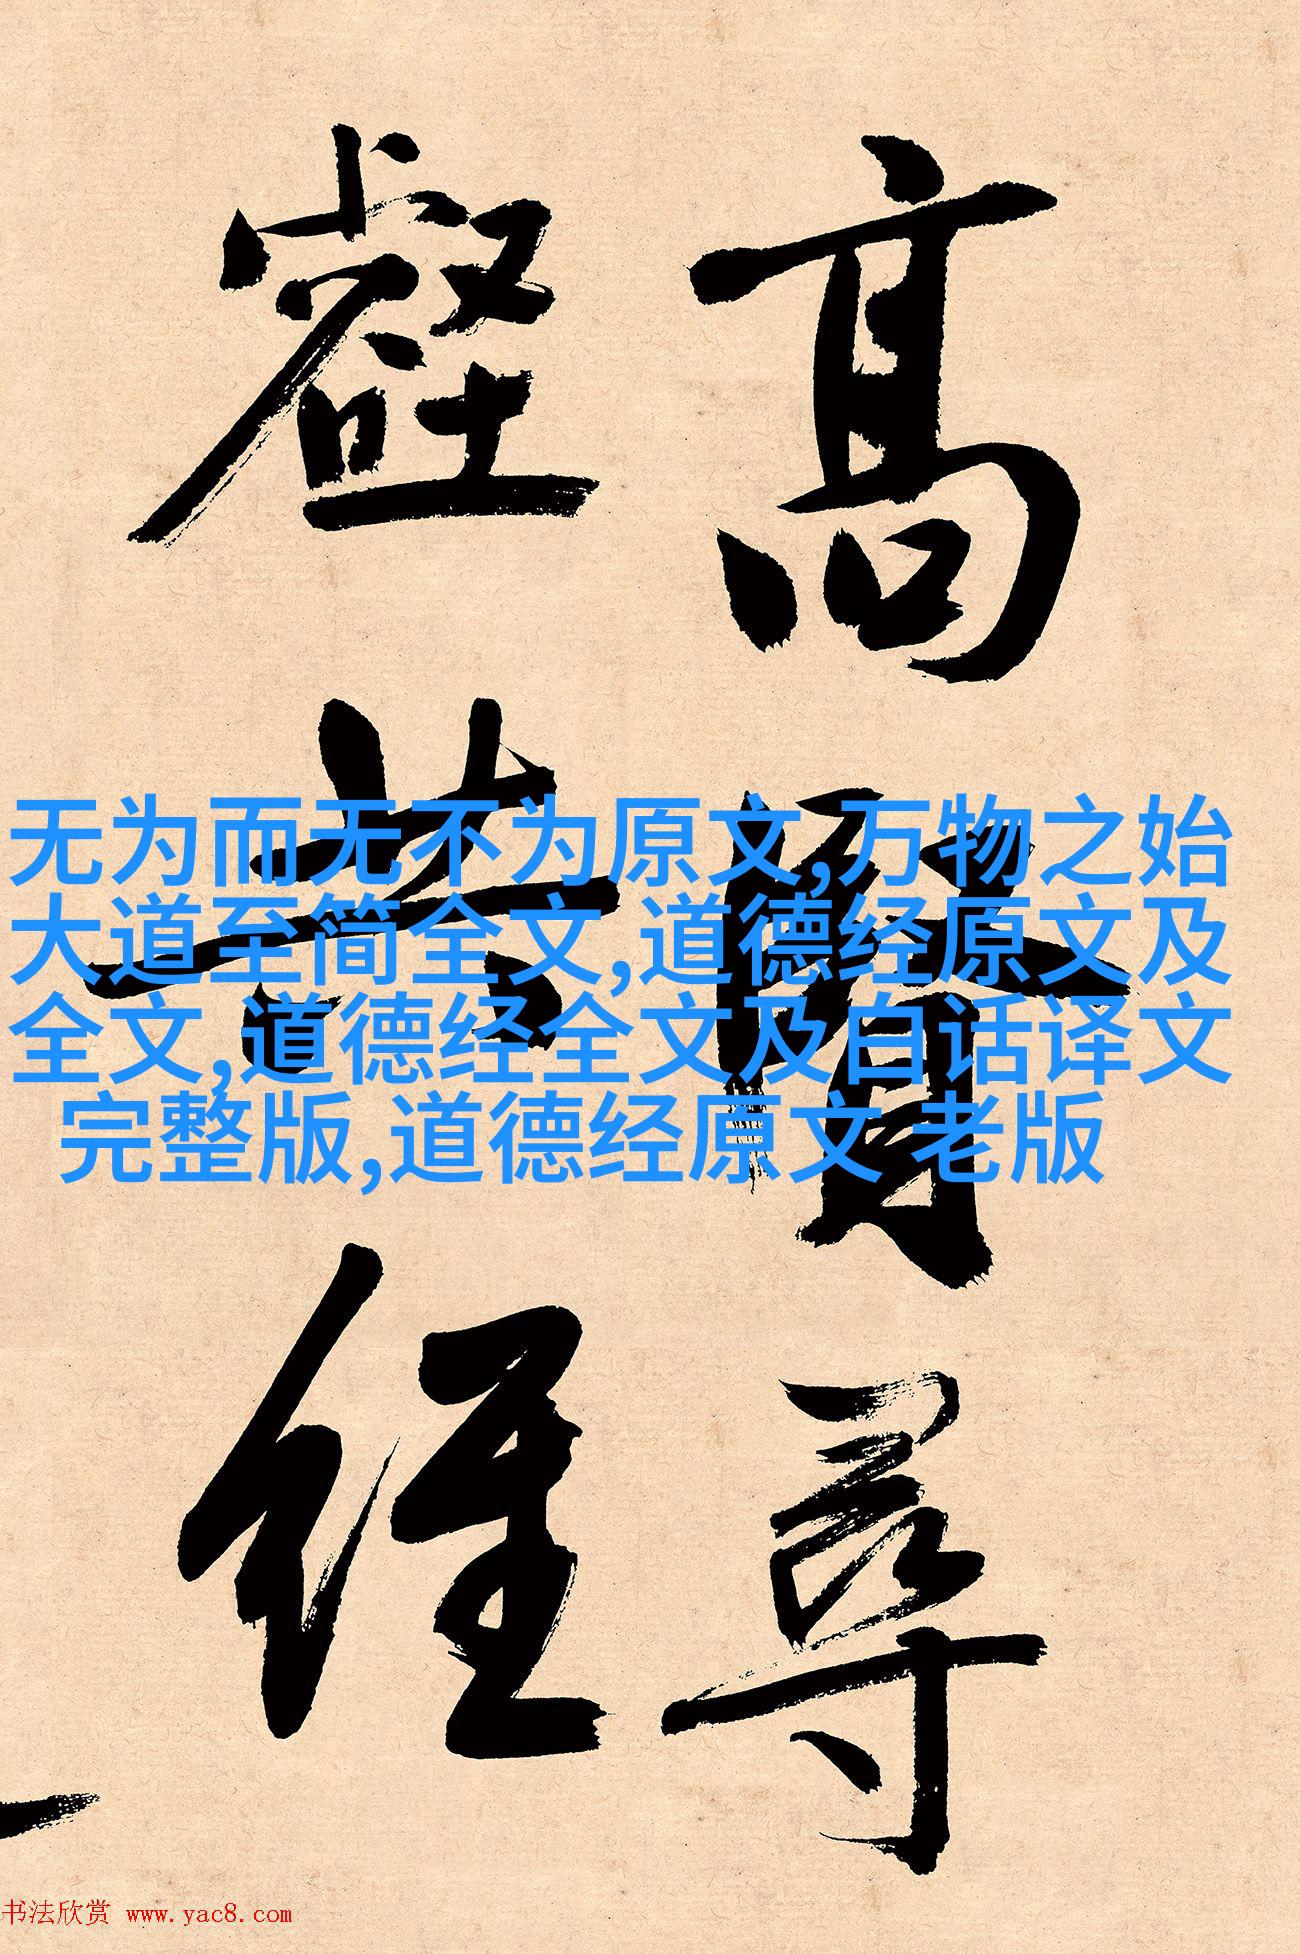 高賢尋
壑 經
无为而无不为原文,万物之始
大道至简全文,道德经原文及
全文,道德经全文及白话译文
完整版,道德经原文 老版
书法欣赏 www.yac8.com